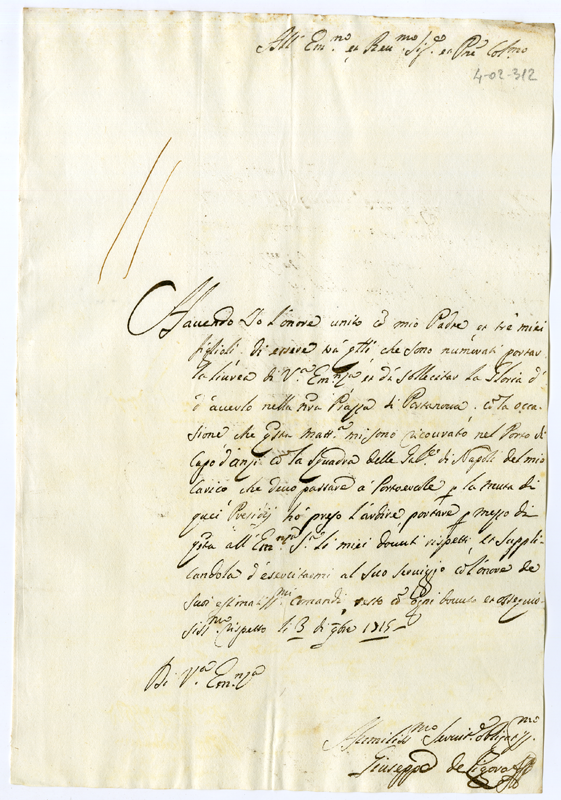 All' Em.no et Reu.mo Sig.e et Pne Col.mo
4-02-312
Hauendo Io l'onore unito cō mio Padre et trè miei
figlioli di essere trà qlli, che sono numerati portar
la liurea di V.a Em.nza et dà sollecitar la Gloria d'
d'auerlo nella nra Piazza di Portanoua, cō la occa-
sione che qsta matt.a mi sono ricourato nel Porto di
Capo d'anzi cō la Squadra delle Gal.e di Napoli del mio
carico che deuo passare à Portoercole p la muta di
quei Presidij hò preso l'ardire portare p mezzo di
qsta all' Em.nza S.a li miei douuti rispetti, et suppli-
candola d'esercitarmi al suo seruizio cō l'onore de
suoi stimatiss.mi comandi, resto cō ogni douuto et ossequio-
siss.mo rispetto li 3 di 9bre 1715
Di V.a Em.nza
Humiliss.mo Seruit.e Obligatiss.mo
Giuseppe de